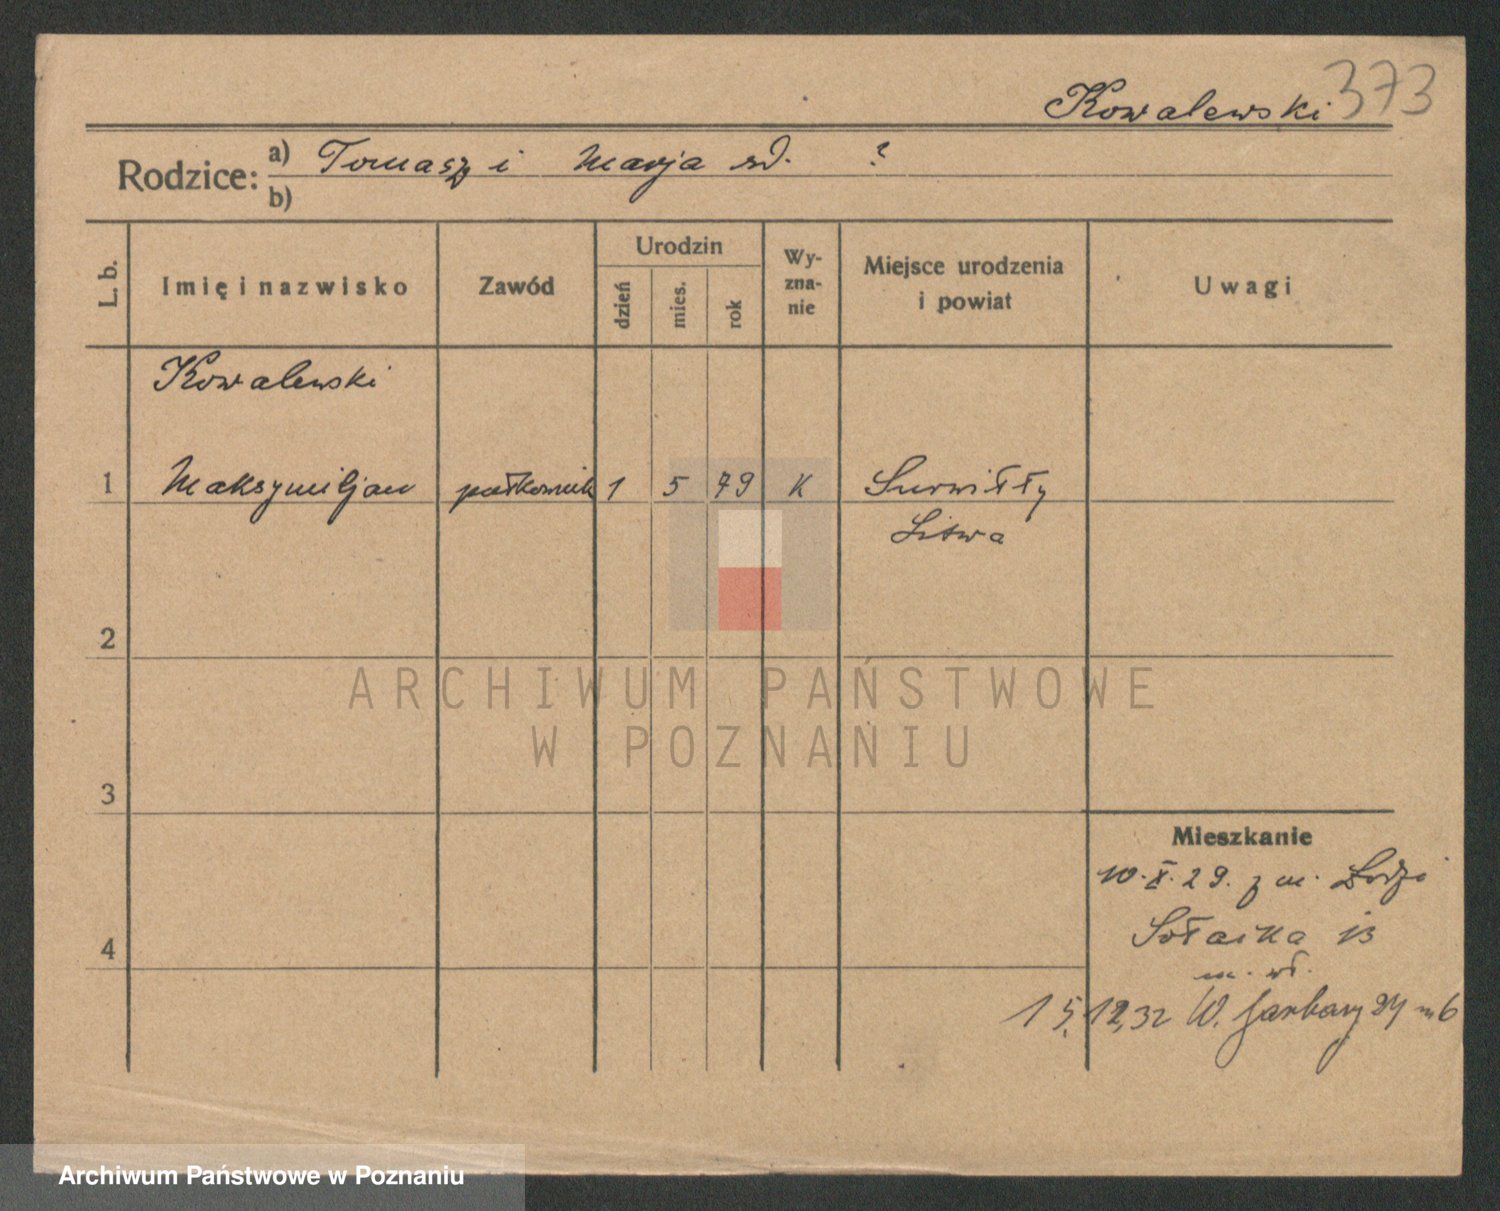 Kowalewski 373
Rodzice: a) Tomasz i Marja rd. ?
b)
L. b.
Imię i nazwisko
Zawód
Urodzin
dzień
mies.
rok
Wy-
zna-
nie
Miejsce urodzenia
i powiat
Uwagi
Kowalewski
1 Maksymiljan pułkownik 1 5 79 K Surwiłły
Litwa
2
ARCHIWUM PAŃSTWOWE
W POZNANIU
3
Mieszkanie
10.X.29. z m. Łodzi
4
Sołacka 13
m. wł.
15,12,32 W. Garbary m 6
Archiwum Państwowe w Poznaniu